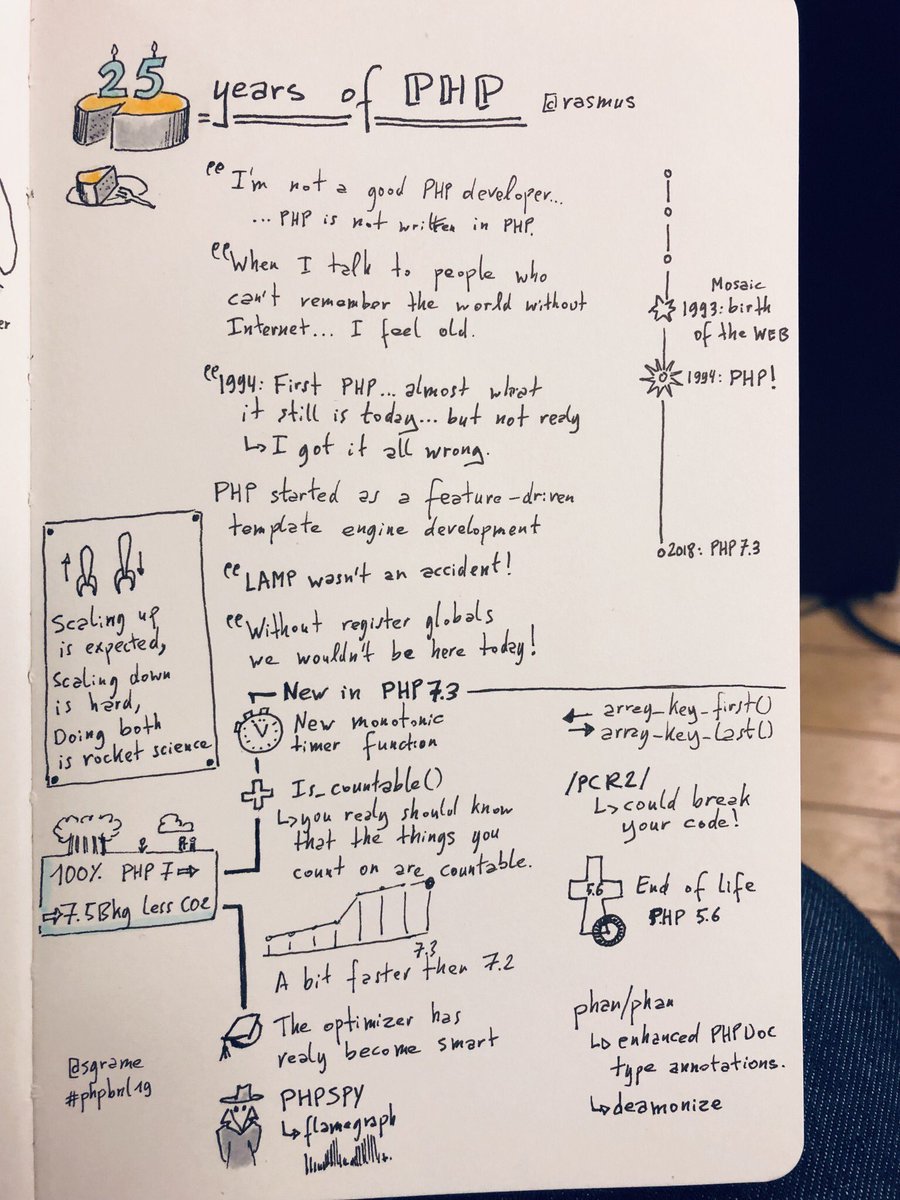 25 years of PHP @rasmus
“I'm not a good PHP developer...
... PHP is not written in PHP.
“When I talk to people who
can't remember the world without
Internet... I feel old.
“1994: First PHP... almost what
it still is today... but not realy
↳ I got it all wrong.
PHP started as a feature-driven
template engine development
“LAMP wasn't an accident!
“Without register globals
we wouldn't be here today!
Mosaic
1993: birth
of the WEB
1994: PHP!
2018: PHP 7.3
Scaling up
is expected,
Scaling down
is hard,
Doing both
is rocket science
100% PHP 7 ⇒
⇒ 7.5Bkg Less CO2
New in PHP 7.3
New monotonic
timer function
Is_countable()
↳ you realy should know
that the things you
count on are countable.
7.3
A bit faster then 7.2
The optimizer has
realy become smart
PHPSPY
↳ flamegraph
← array_key_first()
→ array_key_last()
/PCR2/
↳ could break
your code!
5.6
End of life
PHP 5.6
phan/phan
↳ enhanced PHPDoc
type annotations.
↳ deamonize
@sgrame
#phpbnl19
er